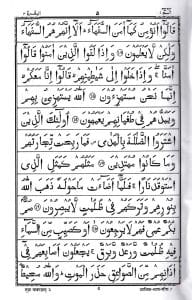 البقرة ٢ ٥
قَالُوْٓا اَنُؤْمِنُ كَمَآ اٰمَنَ السُّفَهَآءُ ؕ اَلَآ اِنَّهُمْ هُمُ السُّفَهَآءُ
وَلٰكِنْ لَّا يَعْلَمُوْنَ ۝ وَاِذَا لَقُوا الَّذِيْنَ اٰمَنُوْا قَالُوْٓا
اٰمَنَّا ۚ وَاِذَا خَلَوْا اِلٰى شَيٰطِيْنِهِمْ ۙ قَالُوْٓا اِنَّا مَعَكُمْ ۙ
اِنَّمَا نَحْنُ مُسْتَهْزِءُوْنَ ۝ اَللّٰهُ يَسْتَهْزِئُ بِهِمْ
وَيَمُدُّهُمْ فِيْ طُغْيَانِهِمْ يَعْمَهُوْنَ ۝ اُولٰٓئِكَ الَّذِيْنَ
اشْتَرَوُا الضَّلٰلَةَ بِالْهُدٰى ۪ فَمَا رَبِحَتْ تِّجَارَتُهُمْ
وَمَا كَانُوْا مُهْتَدِيْنَ ۝ مَثَلُهُمْ كَمَثَلِ الَّذِى
اسْتَوْقَدَ نَارًا ۚ فَلَمَّآ اَضَآءَتْ مَا حَوْلَهٗ ذَهَبَ اللّٰهُ
بِنُوْرِهِمْ وَتَرَكَهُمْ فِيْ ظُلُمٰتٍ لَّا يُبْصِرُوْنَ ۝ صُمٌّۢ
بُكْمٌ عُمْيٌ فَهُمْ لَا يَرْجِعُوْنَ ۝ اَوْ كَصَيِّبٍ مِّنَ السَّمَآءِ
فِيْهِ ظُلُمٰتٌ وَّرَعْدٌ وَّبَرْقٌ ۚ يَجْعَلُوْنَ اَصَابِعَهُمْ فِيْٓ
اٰذَانِهِمْ مِّنَ الصَّوَاعِقِ حَذَرَ الْمَوْتِ ؕ وَاللّٰهُ مُحِيْطٌۢ